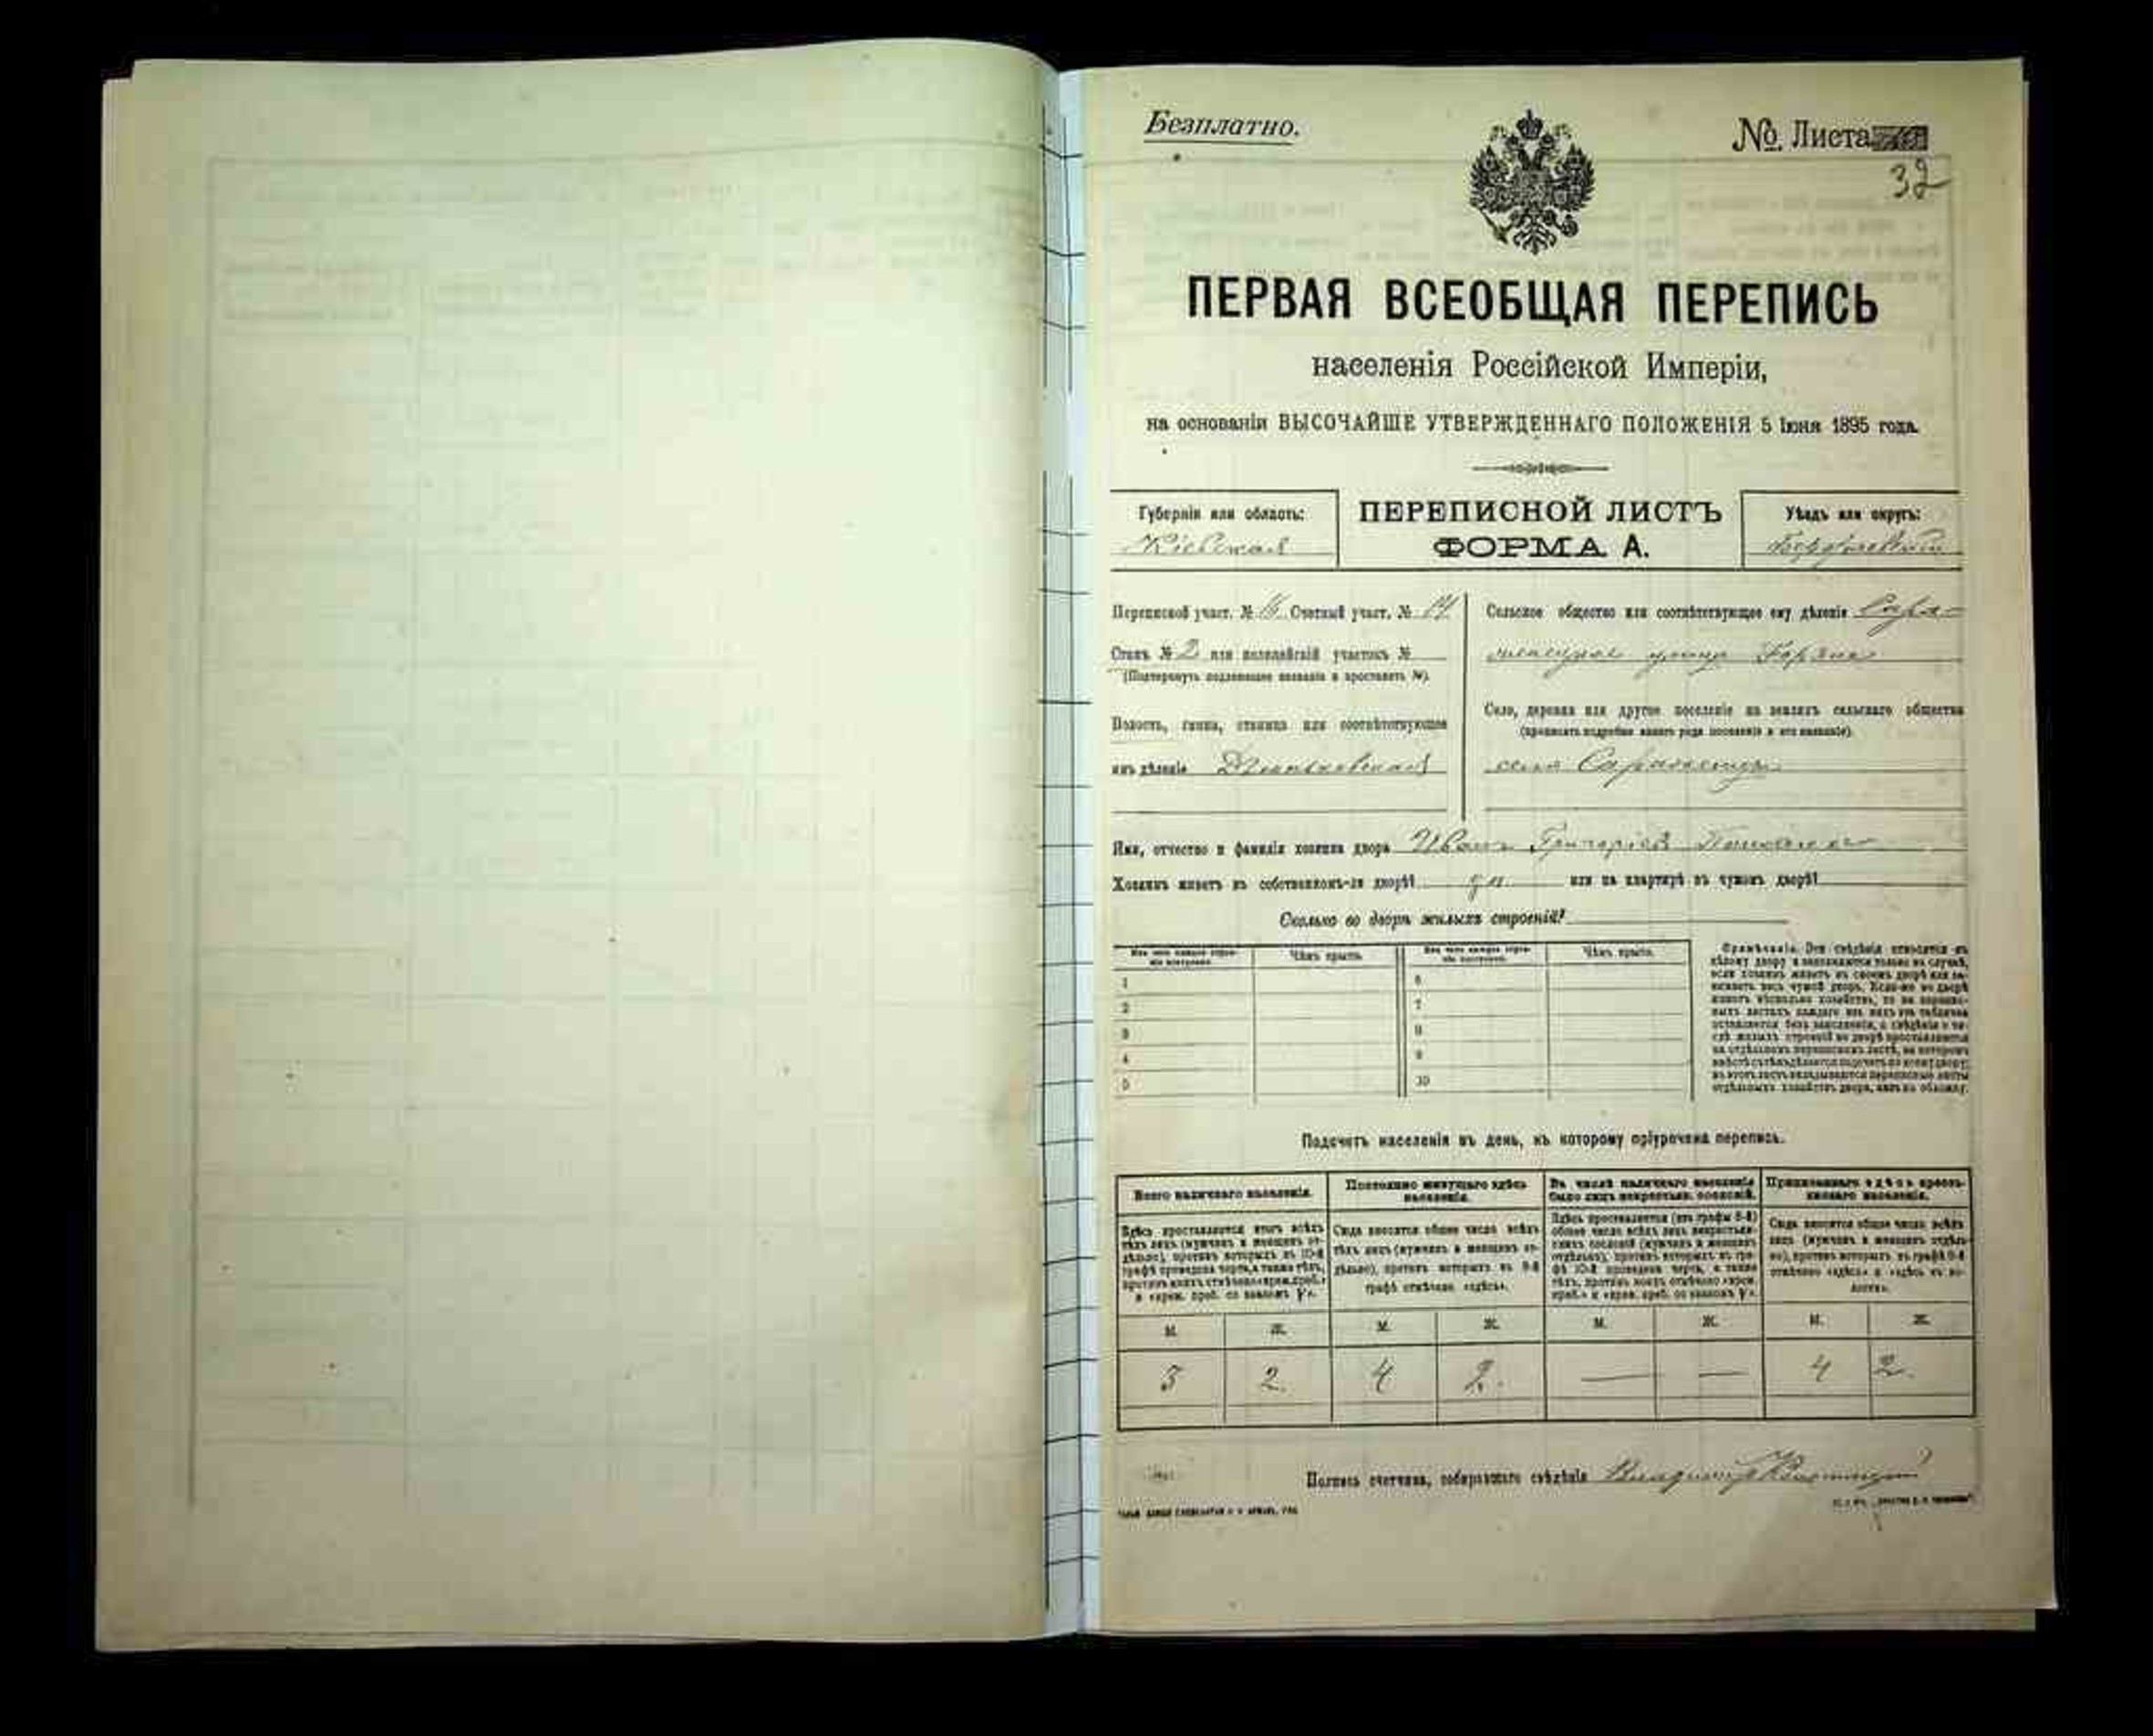 Безплатно.
№ Листа
32
ПЕРВАЯ ВСЕОБЩАЯ ПЕРЕПИСЬ
населенія Россійской Имперіи,
на основаніи ВЫСОЧАЙШЕ УТВЕРЖДЕННАГО ПОЛОЖЕНІЯ 5 Іюня 1895 года.
Губернія или область:
Кіевская
ПЕРЕПИСНОЙ ЛИСТЪ
ФОРМА А.
Уѣздъ или округъ:
Переписной участ. № Счетный участ. № 14
Сельское общество или соотвѣтствующее ему дѣленіе
Станъ № 2 или полицейскій участокъ №
(Подчеркнуть подлежащее названіе и проставить №).
Волость, гмина, станица или соотвѣтствующее
имъ дѣленіе
Село, деревня или другое поселеніе на земляхъ сельскаго общества
(прописать подробно какого рода поселеніе и его названіе).
село
Имя, отчество и фамилія хозяина двора Иванъ Григоріевъ
Хозяинъ живетъ въ собственномъ-ли дворѣ? да или на квартирѣ въ чужомъ дворѣ?
Сколько во дворѣ жилыхъ строеній?
Изъ чего каждое строе-
ніе построено.
Чѣмъ крыто.
Изъ чего каждое строе-
ніе построено.
Чѣмъ крыто.
1 6
2 7
3 8
4 9
5 10
Примѣчаніе. Эти свѣдѣнія относятся къ
цѣлому двору и заполняются только въ случаѣ,
если хозяинъ живетъ въ своемъ дворѣ или за-
нимаетъ весь чужой дворъ. Если-же во дворѣ
живетъ нѣсколько хозяйствъ, то на перепис-
ныхъ листахъ каждаго изъ нихъ эта табличка
оставляется безъ заполненія, а свѣдѣнія о чи-
слѣ жилыхъ строеній во дворѣ проставляются
на отдѣльномъ переписномъ листѣ, на которомъ
вмѣстѣ съ тѣмъ дѣлается подсчетъ по всему двору;
въ этотъ листъ вкладываются переписные листы
отдѣльныхъ хозяйствъ двора, какъ въ обложку.
Подсчетъ населенія въ день, къ которому пріурочена перепись.
Всего наличнаго населенія.
Постоянно живущаго здѣсь
населенія.
Въ числѣ наличнаго населенія
было лицъ некрестьян. сословій.
Приписаннаго здѣсь кресть-
янскаго населенія.
Здѣсь проставляется итогъ всѣхъ
тѣхъ лицъ (мужчинъ и женщинъ от-
дѣльно), противъ которыхъ въ 10-й
графѣ проведена черта, а также тѣхъ,
противъ коихъ отмѣчено «врем. преб.»
и «врем. преб. со знакомъ V».
Сюда вносится общее число всѣхъ
тѣхъ лицъ (мужчинъ и женщинъ от-
дѣльно), противъ которыхъ въ 9-й
графѣ отмѣчено «здѣсь».
Здѣсь проставляется (изъ графы 5-й)
общее число всѣхъ лицъ некрестьян-
скихъ сословій (мужчинъ и женщинъ
отдѣльно), противъ которыхъ въ гра-
фѣ 10-й проведена черта, а также
тѣхъ, противъ коихъ отмѣчено «врем.
преб.» и «врем. преб. со знакомъ V».
Сюда вносится общее число всѣхъ
лицъ (мужчинъ и женщинъ отдѣль-
но), противъ которыхъ въ графѣ 8-й
отмѣчено «здѣсь» и «здѣсь въ во-
лости».
М. Ж. М. Ж. М. Ж. М. Ж.
3 2 4 2. — — 4 2.
Подпись счетчика, собиравшаго свѣдѣнія Владиміръ